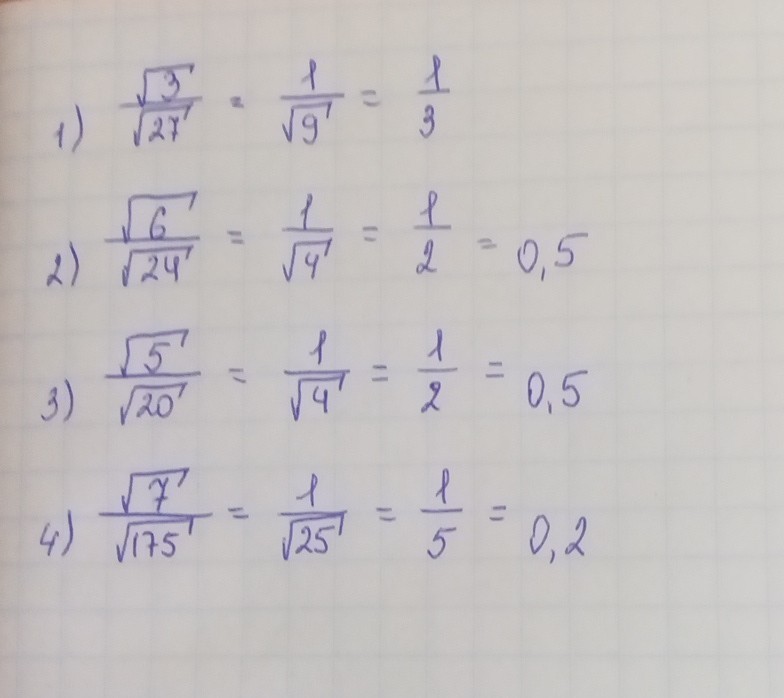 1) √3/√27 = 1/√9 = 1/3
2) √6/√24 = 1/√4 = 1/2 = 0,5
3) √5/√20 = 1/√4 = 1/2 = 0,5
4) √7/√175 = 1/√25 = 1/5 = 0,2